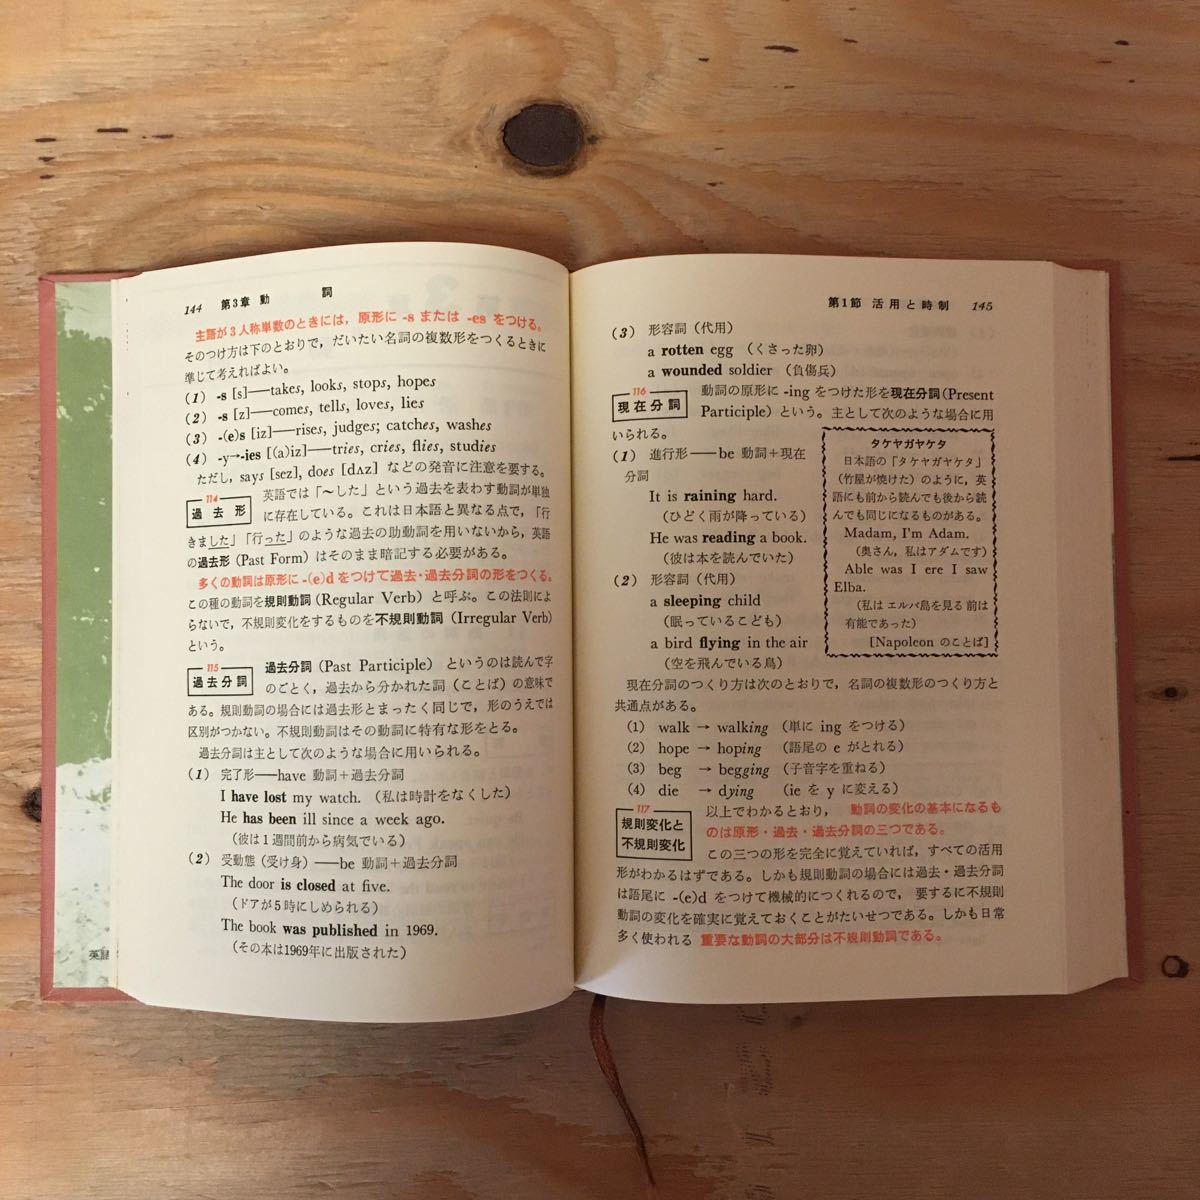 144 第3章 動 詞
主語が3人称単数のときには，原形に -s または -es をつける。
そのつけ方は下のとおりで，だいたい名詞の複数形をつくるときに
準じて考えればよい。
(1) -s [s]——takes, looks, stops, hopes
(2) -s [z]——comes, tells, loves, lies
(3) -(e)s [iz]——rises, judges; catches, washes
(4) -y→-ies [(a)iz]——tries, cries, flies, studies
ただし，says [sez], does [dʌz] などの発音に注意を要する。
114
過去形
英語では「～した」という過去を表わす動詞が単独
に存在している。これは日本語と異なる点で，「行
きました」「行った」のような過去の助動詞を用いないから，英語
の過去形 (Past Form) はそのまま暗記する必要がある。
多くの動詞は原形に -(e)d をつけて過去・過去分詞の形をつくる。
この種の動詞を規則動詞 (Regular Verb) と呼ぶ。この法則によ
らないで，不規則変化をするものを不規則動詞 (Irregular Verb)
という。
115
過去分詞
過去分詞 (Past Participle) というのは読んで字
のごとく，過去から分かれた詞（ことば）の意味で
ある。規則動詞の場合には過去形とまったく同じで，形のうえでは
区別がつかない。不規則動詞はその動詞に特有な形をとる。
過去分詞は主として次のような場合に用いられる。
(1) 完了形——have 動詞＋過去分詞
I have lost my watch.（私は時計をなくした）
He has been ill since a week ago.
（彼は1週間前から病気でいる）
(2) 受動態（受け身）——be 動詞＋過去分詞
The door is closed at five.
（ドアが5時にしめられる）
The book was published in 1969.
（その本は1969年に出版された）
英語
第1節 活用と時制 145
(3) 形容詞（代用）
a rotten egg （くさった卵）
a wounded soldier （負傷兵）
116
現在分詞
動詞の原形に -ing をつけた形を現在分詞(Present
Participle) という。主として次のような場合に用
いられる。
(1) 進行形——be 動詞＋現在
分詞
It is raining hard.
（ひどく雨が降っている）
He was reading a book.
（彼は本を読んでいた）
(2) 形容詞（代用）
a sleeping child
（眠っているこども）
a bird flying in the air
（空を飛んでいる鳥）
タケヤガヤケタ
日本語の「タケヤガヤケタ」
（竹屋が焼けた）のように，英
語にも前から読んでも後から読
んでも同じになるものがある。
Madam, I'm Adam.
（奥さん，私はアダムです）
Able was I ere I saw
Elba.
（私は エルバ島を見る 前は
有能であった）
[Napoleon のことば]
現在分詞のつくり方は次のとおりで，名詞の複数形のつくり方と
共通点がある。
(1) walk → walking （単に ing をつける）
(2) hope → hoping （語尾の e がとれる）
(3) beg → begging （子音字を重ねる）
(4) die → dying （ie を y に変える）
117
規則変化と
不規則変化
以上でわかるとおり，動詞の変化の基本になるも
のは原形・過去・過去分詞の三つである。
この三つの形を完全に覚えていれば，すべての活用
形がわかるはずである。しかも規則動詞の場合には過去・過去分詞
は語尾に -(e)d をつけて機械的につくれるので，要するに不規則
動詞の変化を確実に覚えておくことがたいせつである。しかも日常
多く使われる 重要な動詞の大部分は不規則動詞である。